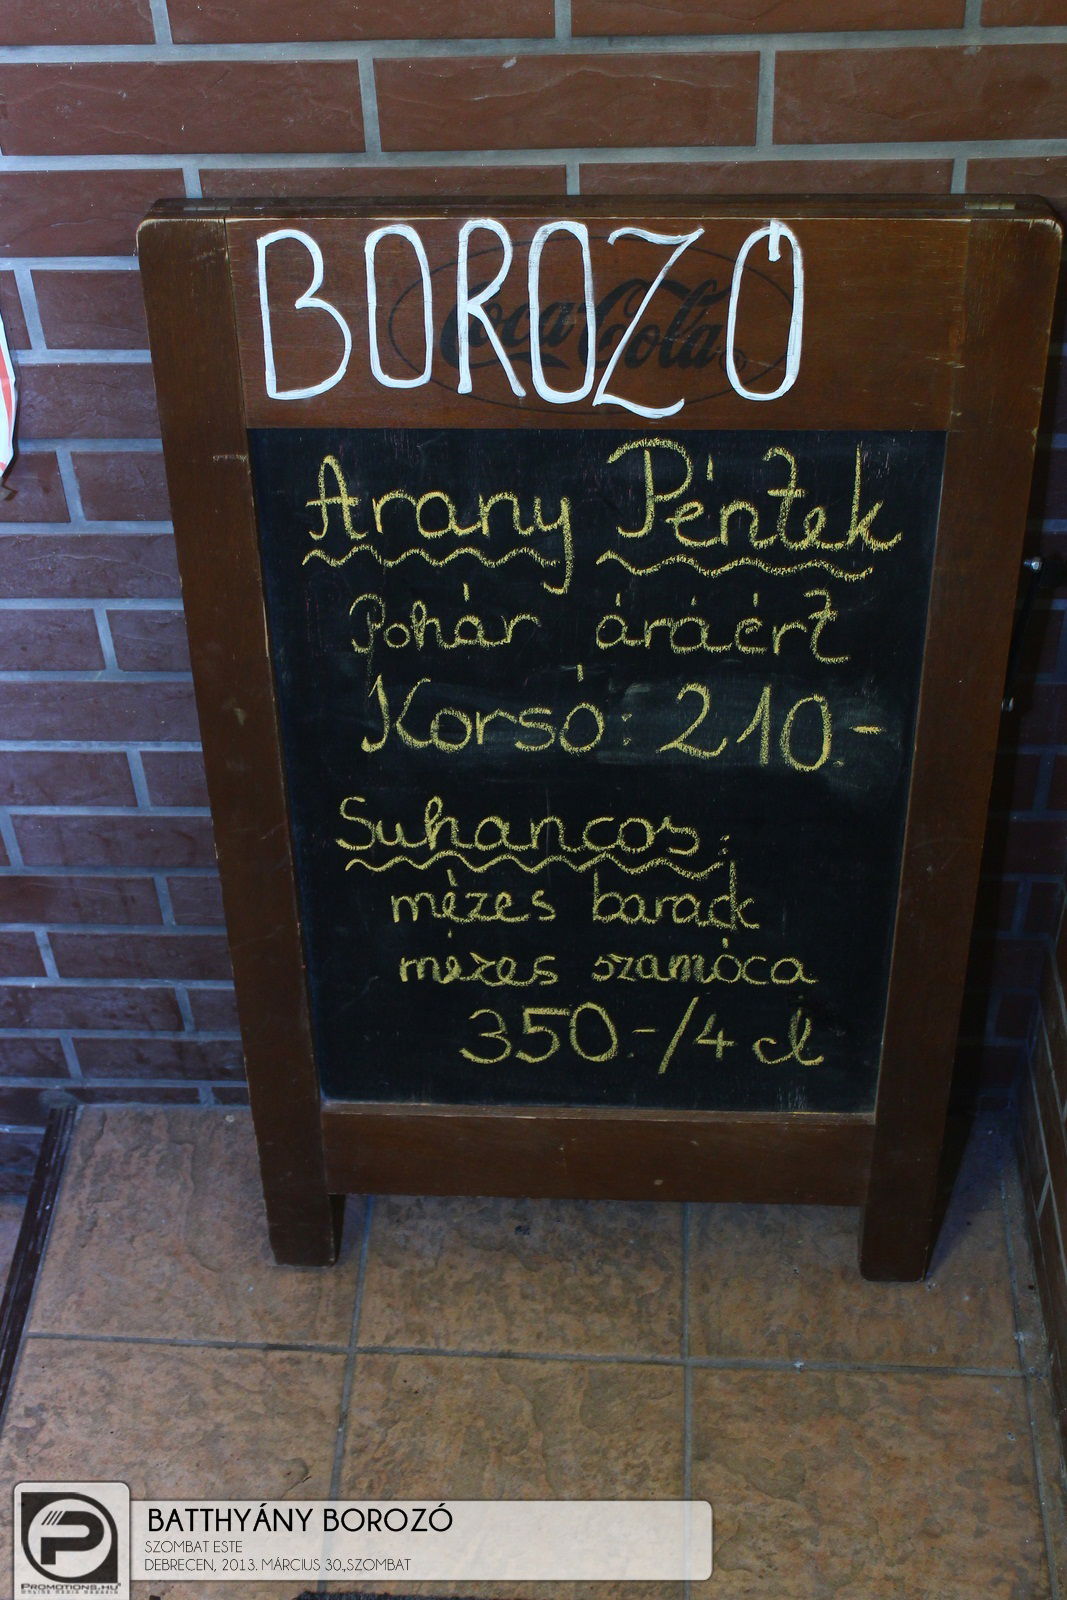 BOROZÓ
Coca-Cola
Arany Péntek
Pohár áráért
Korsó: 210.-
Suhancos:
mézes barack
mézes szamóca
350.-/4 cl
BATTHYÁNY BOROZÓ
SZOMBAT ESTE
DEBRECEN, 2013. MÁRCIUS 30.,SZOMBAT
PROMOTIONS.HU
ONLINE MÉDIA MAGAZIN